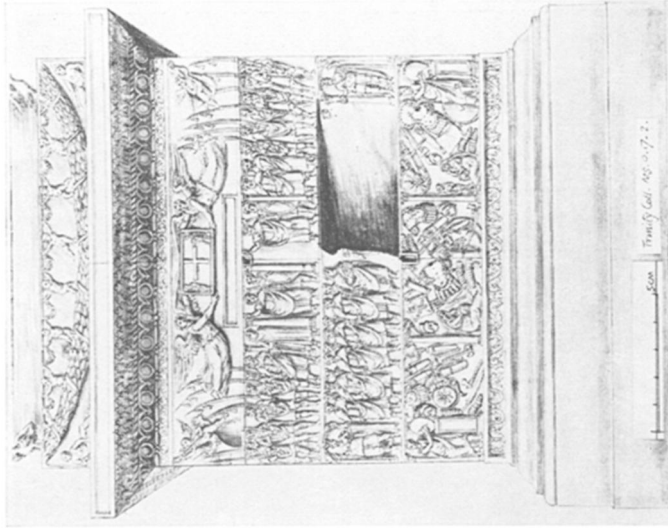 Trinity Coll. MS. O.17.2.
5CM